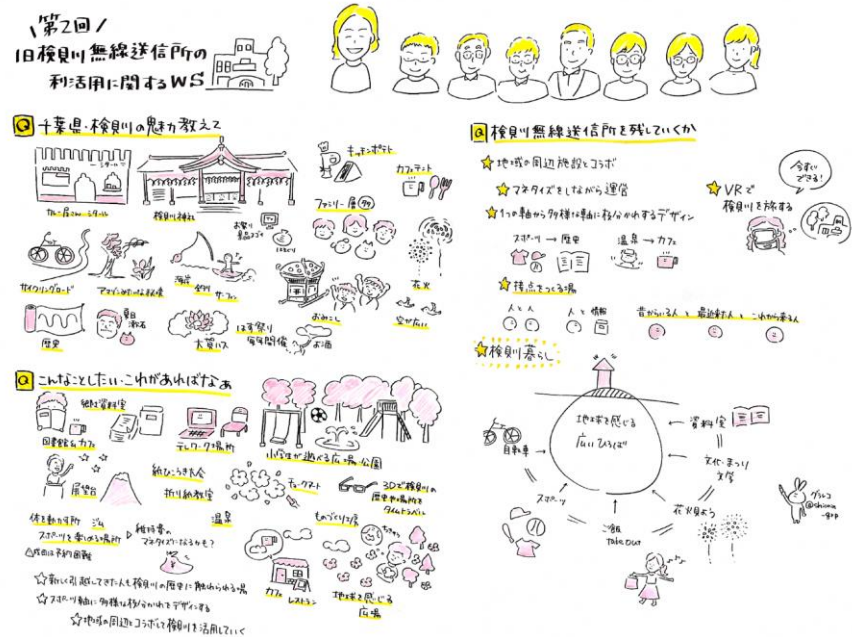 第2回
旧検見川無線送信所の
利活用に関するWS
Q 千葉県・検見川の魅力教えて
カレー屋さんシタール
検見川神社
キッチンポテト
カフェテント
ファミリー層
サイクリングロード
アマゾンみたいな秘境
海岸
釣り
サーフィン
おみこし
花火
空が広い
歴史
夏目
漱石
大賀ハス
はす祭り
毎年開催
お酒
Q こんなことしたい・これがあればなぁ
郷土資料室
図書館&カフェ
テレワーク場所
小学生が遊べる広場・公園
展望台
紙ひこうき大会
折り紙教室
チョークアート
3Dで検見川の
歴史や場所を
タイムトラベル
体を動かす所 ジム
スポーツを楽しめる場所
維持費の
マネタイズになるかも?
温泉
ものづくり工房
カフェ
レストラン
地球を感じる
広場
☆新しく引越してきた人も検見川の歴史に触れられる場
☆スポーツ軸に多様な枝分かれをデザインする
☆地域の周辺とコラボして検見川を活用していく
Q 検見川無線送信所を残していくか
★地域の周辺施設とコラボ
★マネタイズをしながら運営
★1つの軸から多様な軸に枝分かれするデザイン
スポーツ → 歴史
温泉 → カフェ
★接点をつくる場
人と人
人と情報
昔からいる人
最近来た人
これから来る人
★VRで
検見川を旅する
今すぐ
できる!
★検見川暮らし
地球を感じる
広いひろば
自転車
スポーツ
ご飯
take out
花火見よう
文化・まつり
文学
資料室
グラレコ